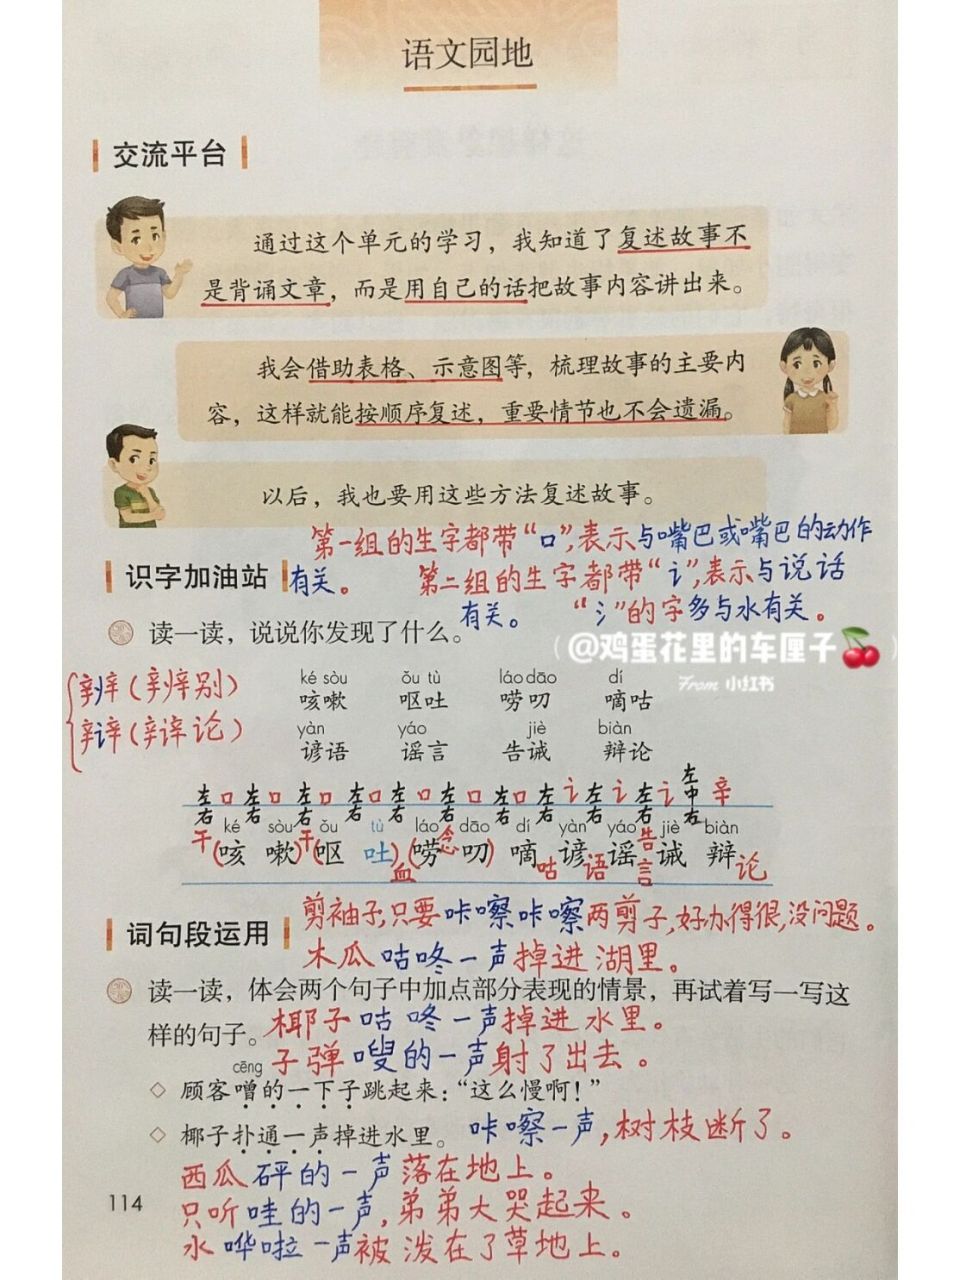 语文园地
交流平台
通过这个单元的学习，我知道了复述故事不
是背诵文章，而是用自己的话把故事内容讲出来。
我会借助表格、示意图等，梳理故事的主要内
容，这样就能按顺序复述，重要情节也不会遗漏。
以后，我也要用这些方法复述故事。
第一组的生字都带“口”，表示与嘴巴或嘴巴的动作
识字加油站
有关。 第二组的生字都带“讠”，表示与说话
有关。 “氵”的字多与水有关。
读一读，说说你发现了什么。
（@鸡蛋花里的车厘子🍒）
From 小红书
辨（辨别）
辩（辩论）
ké sòu ǒu tù láo dāo dí
咳嗽 呕吐 唠叨 嘀咕
yàn yáo jiè biàn
谚语 谣言 告诫 辩论
左右 口 左右 口 左右 口 左右 口 左右 口 左右 口 左右 口 左右 讠 左右 讠 左右 讠 左中右 辛
ké sòu ǒu tù láo dāo dí yàn yáo jiè biàn
干（咳 嗽）干（呕 吐）血（唠念叨）嘀咕 谚语 谣言 告诫 辩论
剪袖子，只要咔嚓咔嚓两剪子，好办得很，没问题。
词句段运用
木瓜咕咚一声掉进湖里。
读一读，体会两个句子中加点部分表现的情景，再试着写一写这
样的句子。
椰子咕咚一声掉进水里。
子弹嗖的一声射了出去。
cēng
顾客噌的一下子跳起来：“这么慢啊！”
椰子扑通一声掉进水里。
咔嚓一声，树枝断了。
西瓜砰的一声落在地上。
114
只听哇的一声，弟弟大哭起来。
水哗啦一声被泼在了草地上。